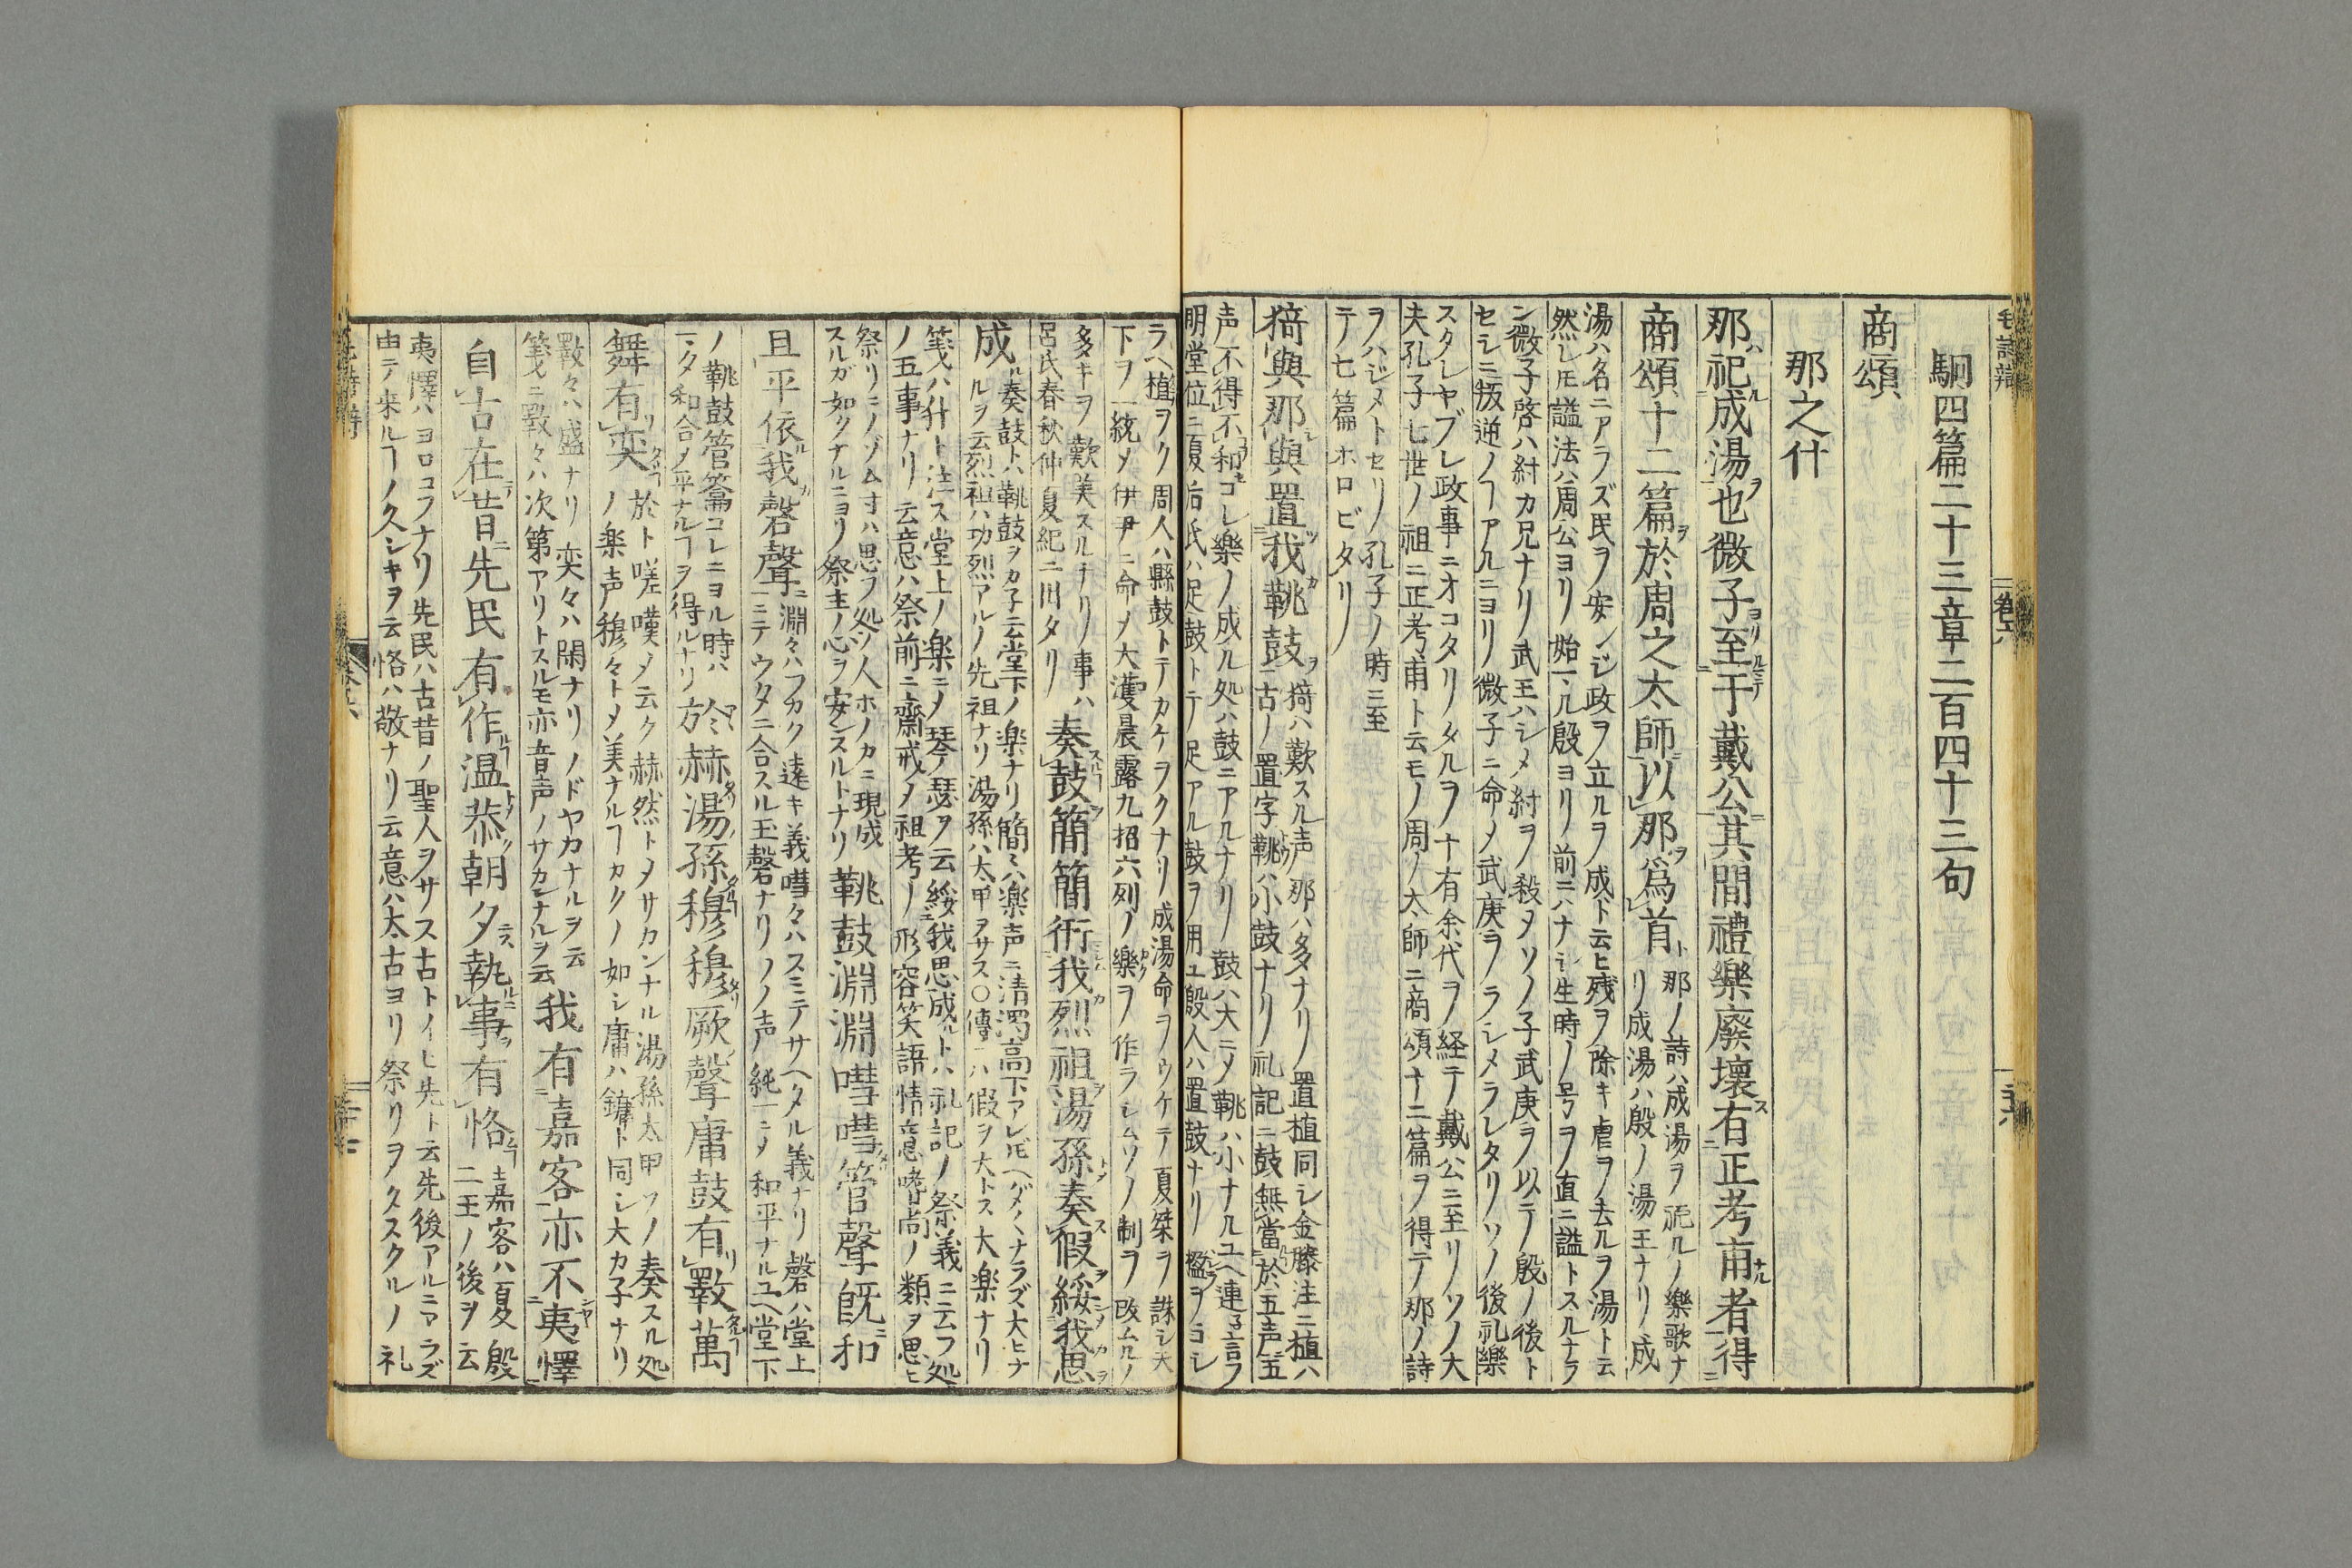 駉四篇二十三章二百四十三句
商頌
那之什
那祀成湯也微子至于戴公其間禮樂廢壞有正考甫者得
商頌十二篇於周之太師以那爲首
那ノ詩ハ成湯ヲ祀ルノ樂歌ナ
リ成湯ハ殷ノ湯王ナリノ成
湯ハ名ニアラズ民ヲ安ンジ政ヲ立ルヲ成ト云ヒ残ヲ除キ虐ヲ去ルヲ湯ト云
然レ𪜈謚法ハ周公ヨリ始マル殷ヨリ前ニハナシ生時ノ号ヲ直ニ謚トスルナラ
ン微子啓ハ紂カ兄ナリ武王ハシメ紂ヲ殺メソノ子武庚ヲ以テ殷ノ後ト
セシニ叛逆ノヿアルニヨリ微子ニ命メ武庚ヲラシメラレタリソノ後礼樂
スタレヤブレ政事ニオコタリタルヲ十有余代ヲ経テ戴公ニ至リソノ大
夫孔子七世ノ祖ニ正考甫ト云モノ周ノ太師ニ商頌十二篇ヲ得テ那ノ詩
ヲハジメトセリ孔子ノ時ニ至
テ七篇ホロビタリ
猗與那與置我鞉鼓
猗ハ歎スル声那ハ多ナリ置植同シ金縢注ニ植ハ
古ノ置字鞉ハ小鼓ナリ礼記ニ鼓無當於五声五
声不得不和コレ樂ノ成ル処ハ鼓ニアルナリ鼓ハ大ニメ鞉ハ小ナルユヘ連子言フ
明堂位ニ夏后氏ハ足鼓トテ足アル鼓ヲ用ユ殷人ハ置鼓ナリ楹ヲコシ
ラヘ植ヲク周人ハ縣鼓トテカケヲクナリ成湯命ヲウケテ夏桀ヲ誅シ天
下ヲ一統メ伊尹ニ命メ大濩晨露九招六列ノ樂ヲ作ラシムソノ制ヲ改ムルノ
多キヲ歎美スルナリノ事ハ
呂氏春秋仲夏紀ニ出タリ
奏鼓簡簡衎我烈祖湯孫奏假綏我思
成
奏鼓トハ鞉鼓ヲカ子云堂下ノ楽ナリ簡々ハ楽声ニ清濁高下アレ𪜈ヘダ〱ナラズ大ヒナ
ルヲ云烈祖ハ功烈アルノ先祖ナリ湯孫ハ太甲ヲサス○傳ニハ假ヲ大トス大楽ナリ
箋ハ升ト注ス堂上ノ楽ニメ琴ノ瑟ヲ云綏我思成トハ礼記ノ祭義ニ云フ処
ノ五事ナリ云意ハ祭前ニ齋戒ノ祖考ノ形容笑語情意嗜尚ノ類ヲ思ヒ
祭リニノゾム寸ハ思フ処ノ人ホノカニ現成
スルガ如クナルニヨリ祭主ノ心ヲ安ンスルトナリ
鞉鼓淵淵嘒嘒管聲既和
且平依我磬聲
淵々ハフカク遠キ義嘒々ハスミテサヘタル義ナリ磬ハ堂上
ニテウタニ合スル玉磬ナリノノ声純一ニメ和平ナルユヘ堂下
ノ鞉鼓管籥コレニヨル時ハ
マタ和合ノ平ナルヿヲ得ルナリ
於赫湯孫穆穆厥聲庸鼓有斁萬
舞有奕
於ト嗟嘆メ云ク赫然トメサカンナル湯孫太甲ソノ奏スル処
ノ楽声穆々トメ美ナルヿカクノ如シ庸ハ鏞ト同シ大カ子ナリ
斁々ハ盛ナリ奕々ハ閑ナリノドヤカナルヲ云
箋ニ斁々ハ次第アリトスルモ亦音声ノサカンナルヲ云
我有嘉客亦不夷懌
自古在昔先民有作温恭朝夕執事有恪
嘉客ハ夏殷
二王ノ後ヲ云
夷懌ハヨロコフナリ先民ハ古昔ノ聖人ヲサス古トイヒ先ト云先後アルニアラズ
由テ来ルヿノ久シキヲ云恪ハ敬ナリ云意ハ太古ヨリ祭リヲタスクルノ礼